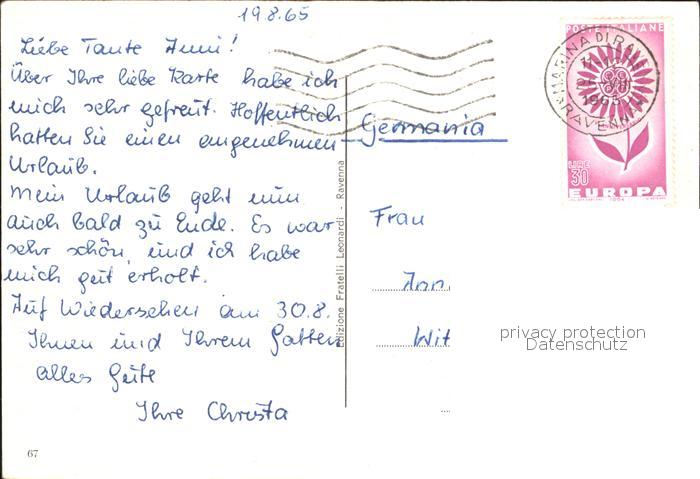 19.8.65
Liebe Tante Anni!
Über Ihre liebe Karte habe ich
mich sehr gefreut. Hoffentlich
hatten Sie einen angenehmen
Urlaub.
Mein Urlaub geht nun
auch bald zu Ende. Es war
sehr schön, und ich habe
mich gut erholt.
Auf Wiedersehen am 30.8.
Ihnen und Ihrem Gatten
alles Gute
Ihre Christa
67
Edizione Fratelli Leonardi - Ravenna
POSTE ITALIANE
LIRE
30
EUROPA
1964
MARINA DI RA
1965
RAVENNA
Germania
Frau
Ann
Wit
privacy protection
Datenschutz